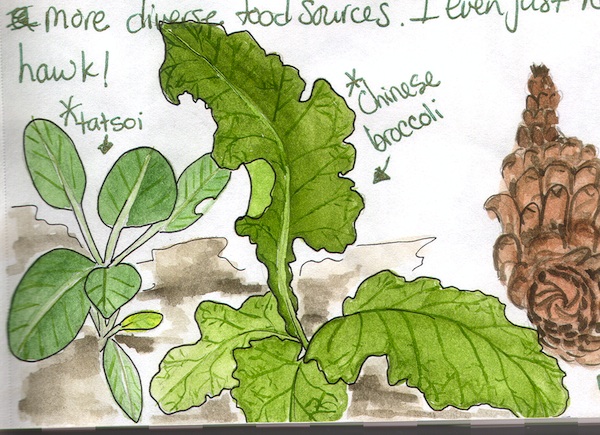 more diverse food sources. I even just
hawk!
*tatsoi
*Chinese
broccoli